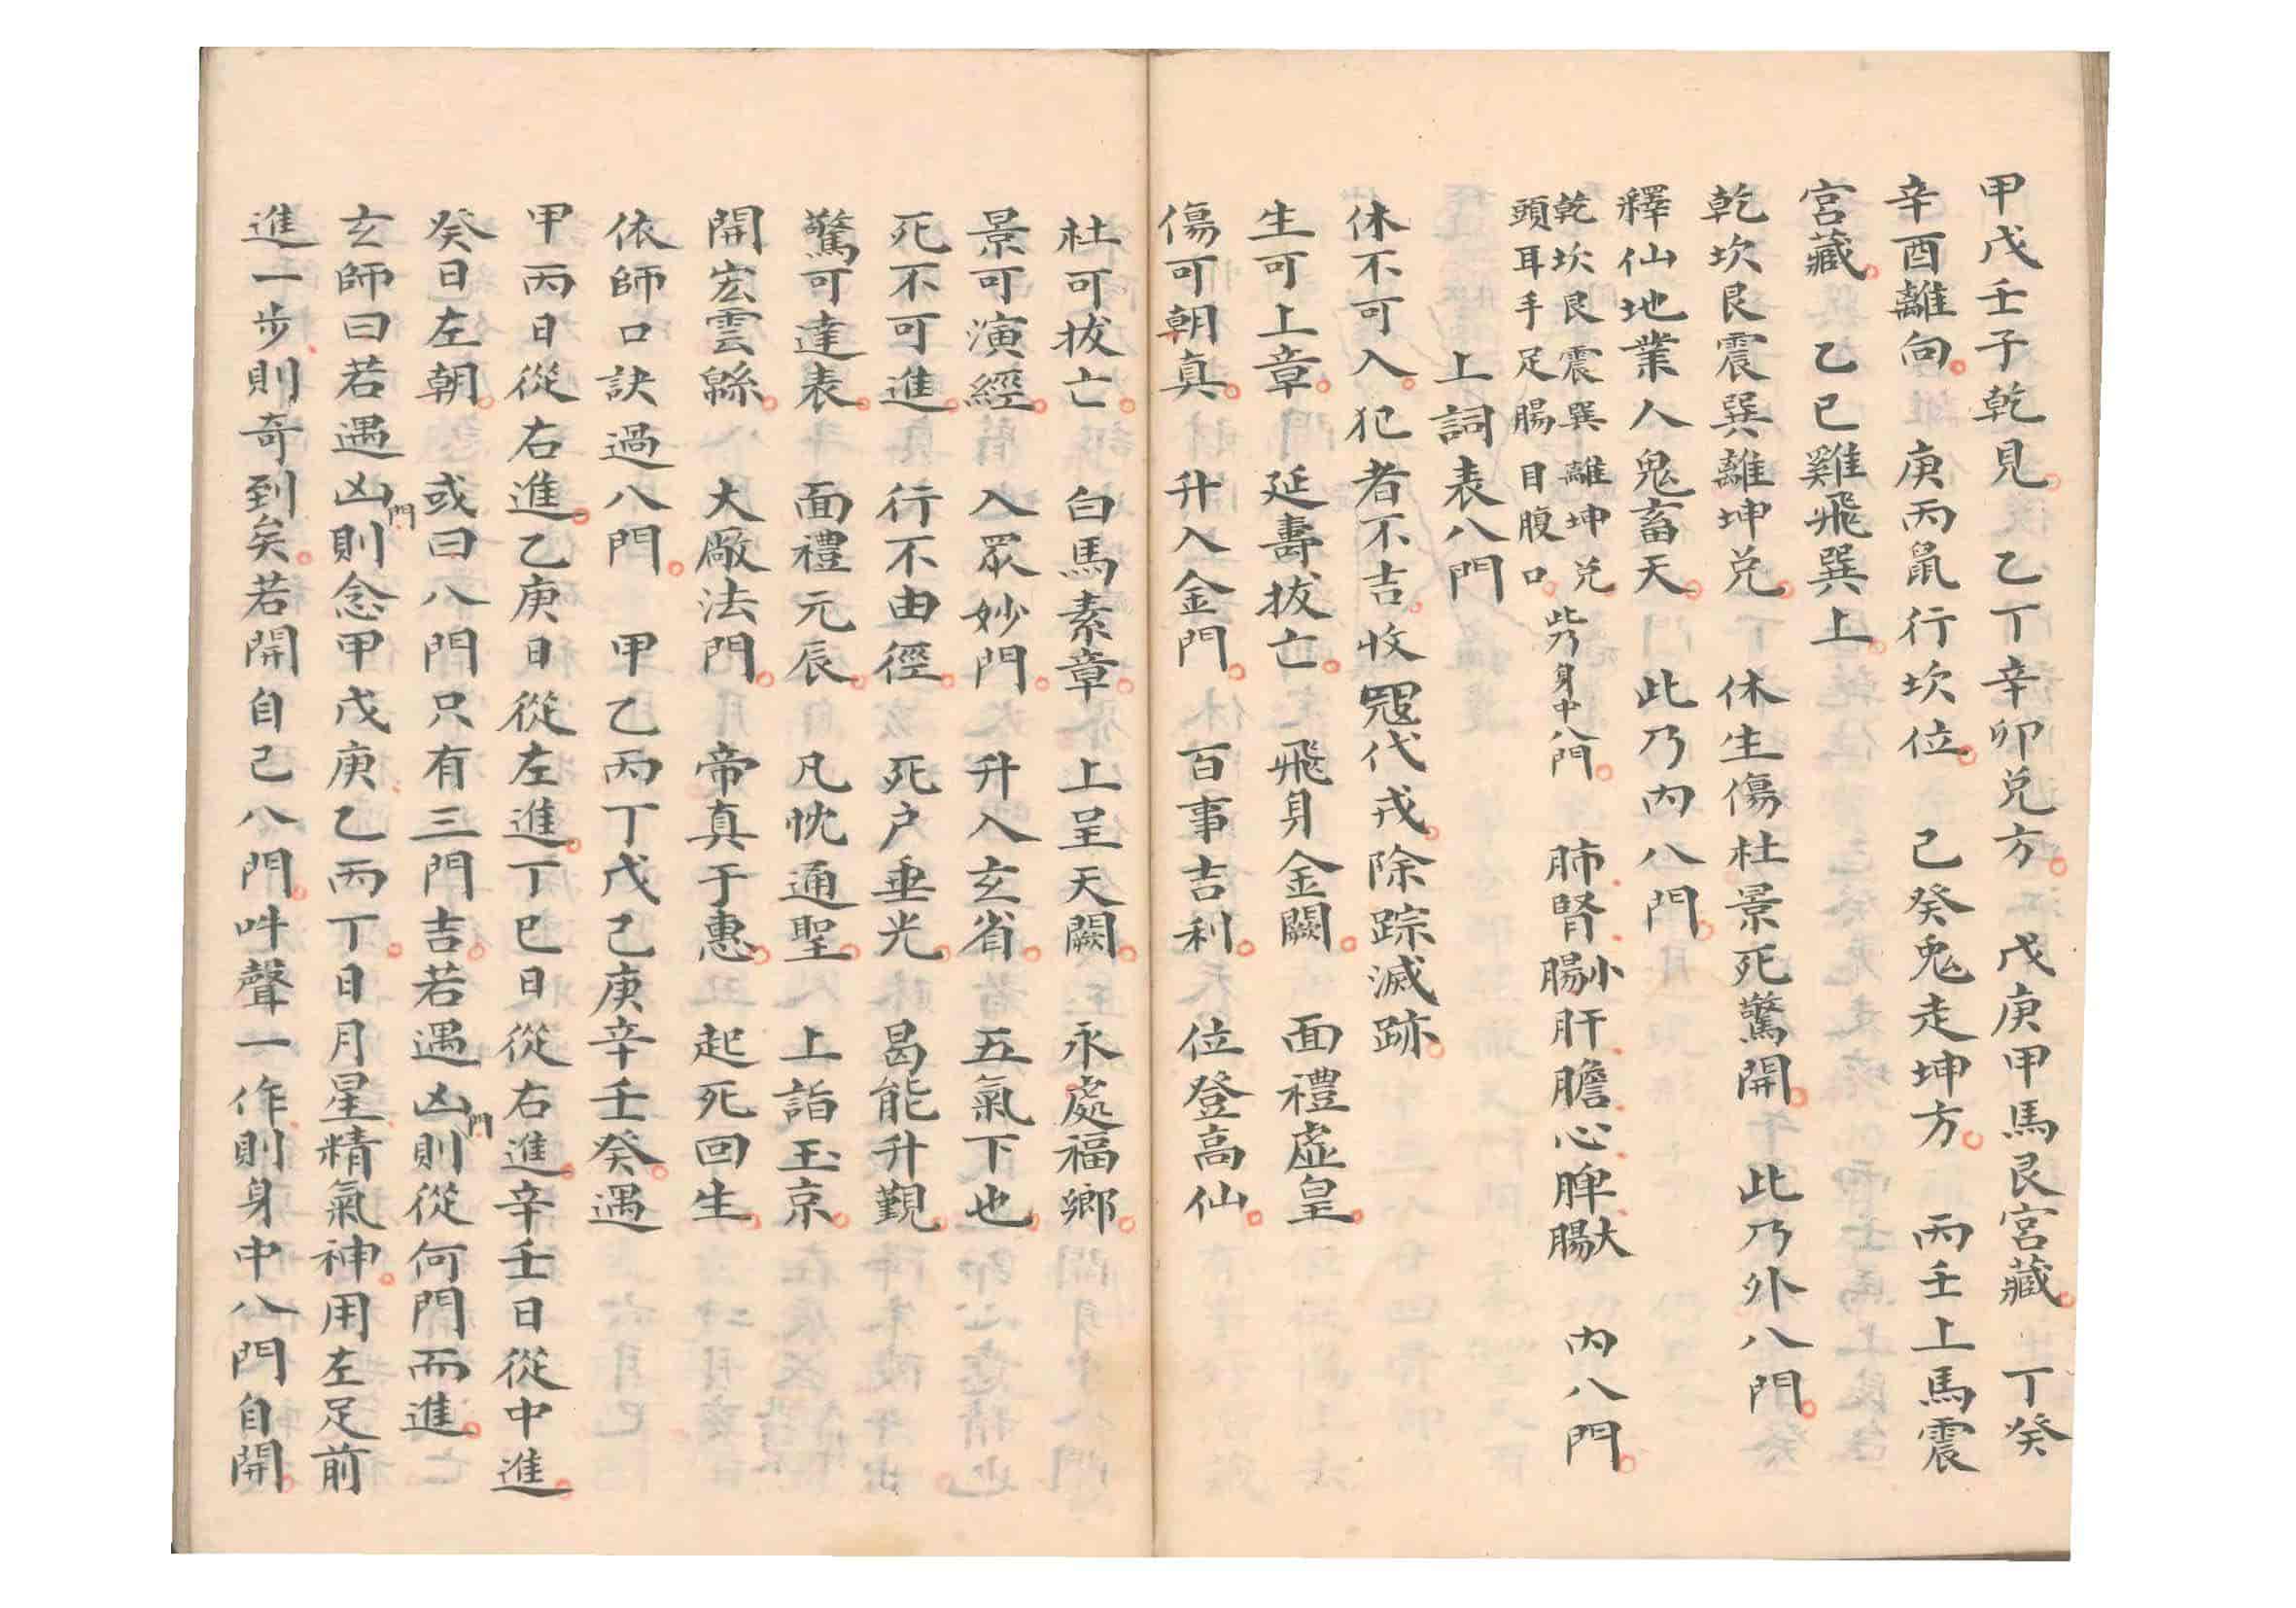 甲戊壬子乾見。乙丁辛卯兌方。戊庚甲馬艮宮藏。丁癸
辛酉離向。庚丙鼠行坎位。己癸兔走坤方。丙壬上馬震
宮藏。乙巳雞飛巽上。
乾坎艮震巽離坤兌。休生傷杜景死驚開。此乃外八門。
釋仙地業人鬼畜天。此乃內八門。
乾坎艮震巽離坤兌
頭耳手足腸目腹口。此乃身中八門。肺腎小腸肝膽心脾大腸 內八門。
上詞表八門
休不可入。犯者不吉。收冠代戎。除踪滅跡。
生可上章。延壽拔亡。飛身金闕。面禮虛皇。
傷可朝真。升入金門。百事吉利。位登高仙。
杜可拔亡。白馬素章。上呈天闕。永處福鄉。
景可演經。入眾妙門。升入玄省。五氣下也。
死不可進。行不由徑。死户垂光。曷能升觀。
驚可達表。面禮元辰。凡忱通聖。上詣玉京。
開宏雲緜。大厰法門。帝真于惠。起死回生。
依師口訣過八門。甲乙丙丁戊己庚辛壬癸。遇
甲丙日從右進。乙庚日從左進。丁巳日從右進。辛壬日從中進。
癸日左朝。或曰八門只有三門吉。若遇凶門則從何門而進。
玄師曰若遇凶門則念甲戊庚乙丙丁。日月星精氣神。用左足前
進一步則奇到矣。若開自己八門。吽聲一作則身中八門自開。